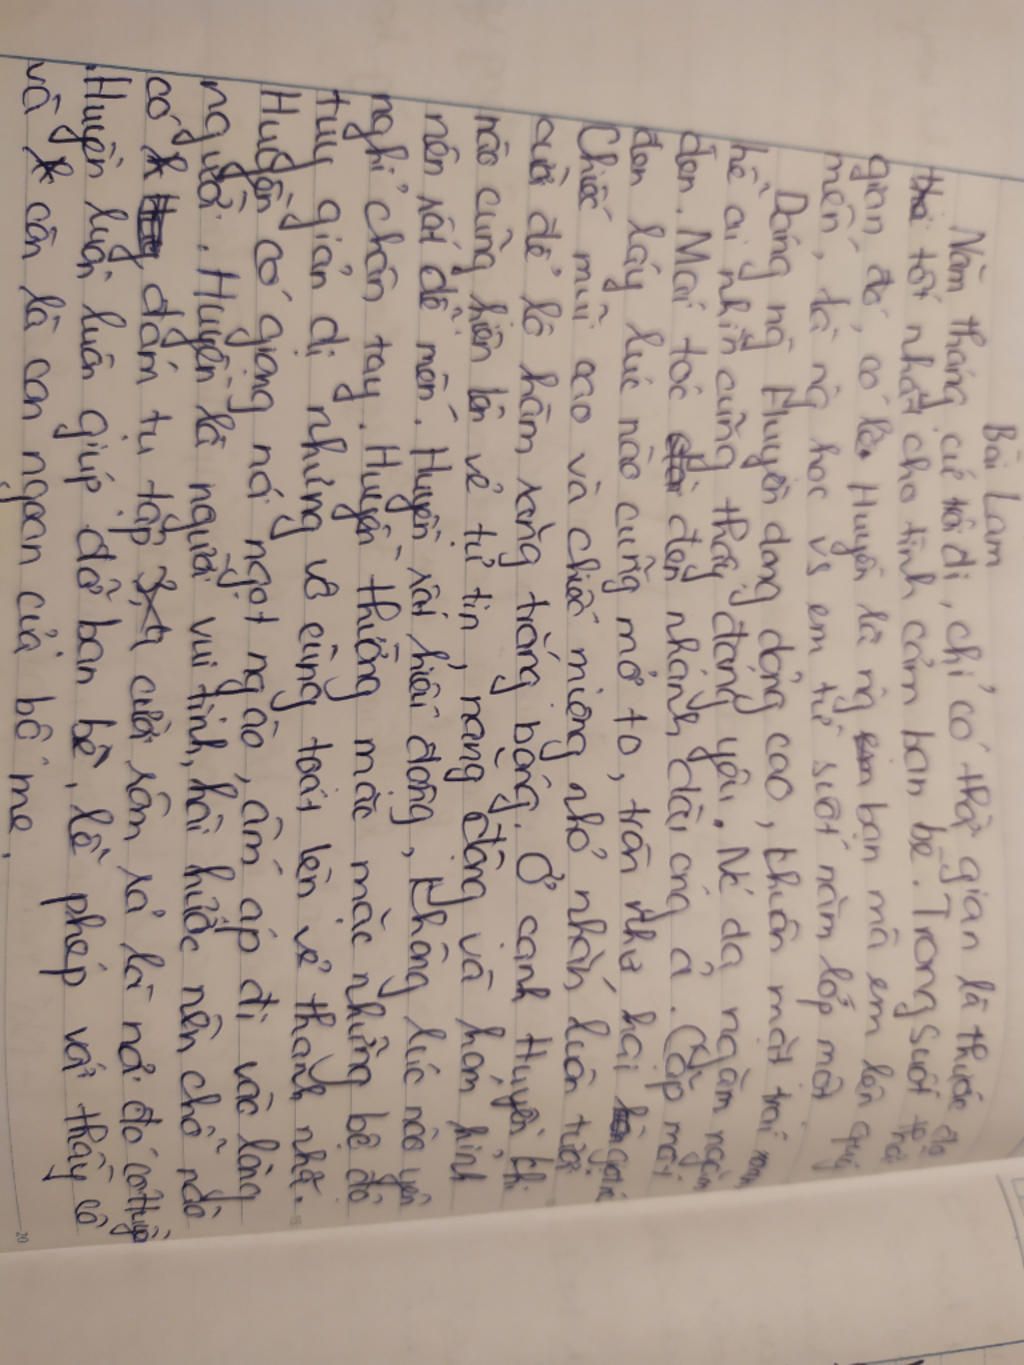 Bài Lam
Năm tháng cứ trôi đi, chỉ có thời gian là thước đo
tốt nhất cho tình cảm bạn bè. Trong suốt thời
gian đó, có lẽ Huyền là ng bạn mà em lên quý
mến, là ng học vs em từ suốt năm lớp một
Dáng nG Huyền dong dỏng cao, khuôn mặt trái xoan
hễ ai nhìn cũng thấy đáng yêu. Nc da ngăm ngăm
đen. Mái tóc đen nhánh dài óng ả. Cặp mắt
đen láy lúc nào cũng mở to, tròn như hai giọt nc
Chiếc mũi cao và chiếc miệng nhỏ nhắn luôn tươi
cười để lô hàm răng trắng bóng. Ở cạnh Huyền khi
nào cũng hiện lên vẻ tự tin, năng động và hóm hỉnh
nên rất dễ mến. Huyền rất hiếu động, không lúc nào yên
nghỉ chân tay. Huyền thường mặc mặc những bộ đồ
tuy giản dị nhưng vô cùng toát lên vẻ thanh nhã.
Huyền có giọng nói ngọt ngào, ấm áp đi vào lòng
người. Huyền là người vui tính, hài hước nên chỗ nào
có đám tụ tập cười rôm rả là nơi đó có Huyền
Huyền luôn luôn giúp đỡ bạn bè, lễ phép với thầy cô
và còn là con ngoan của bố mẹ.
20